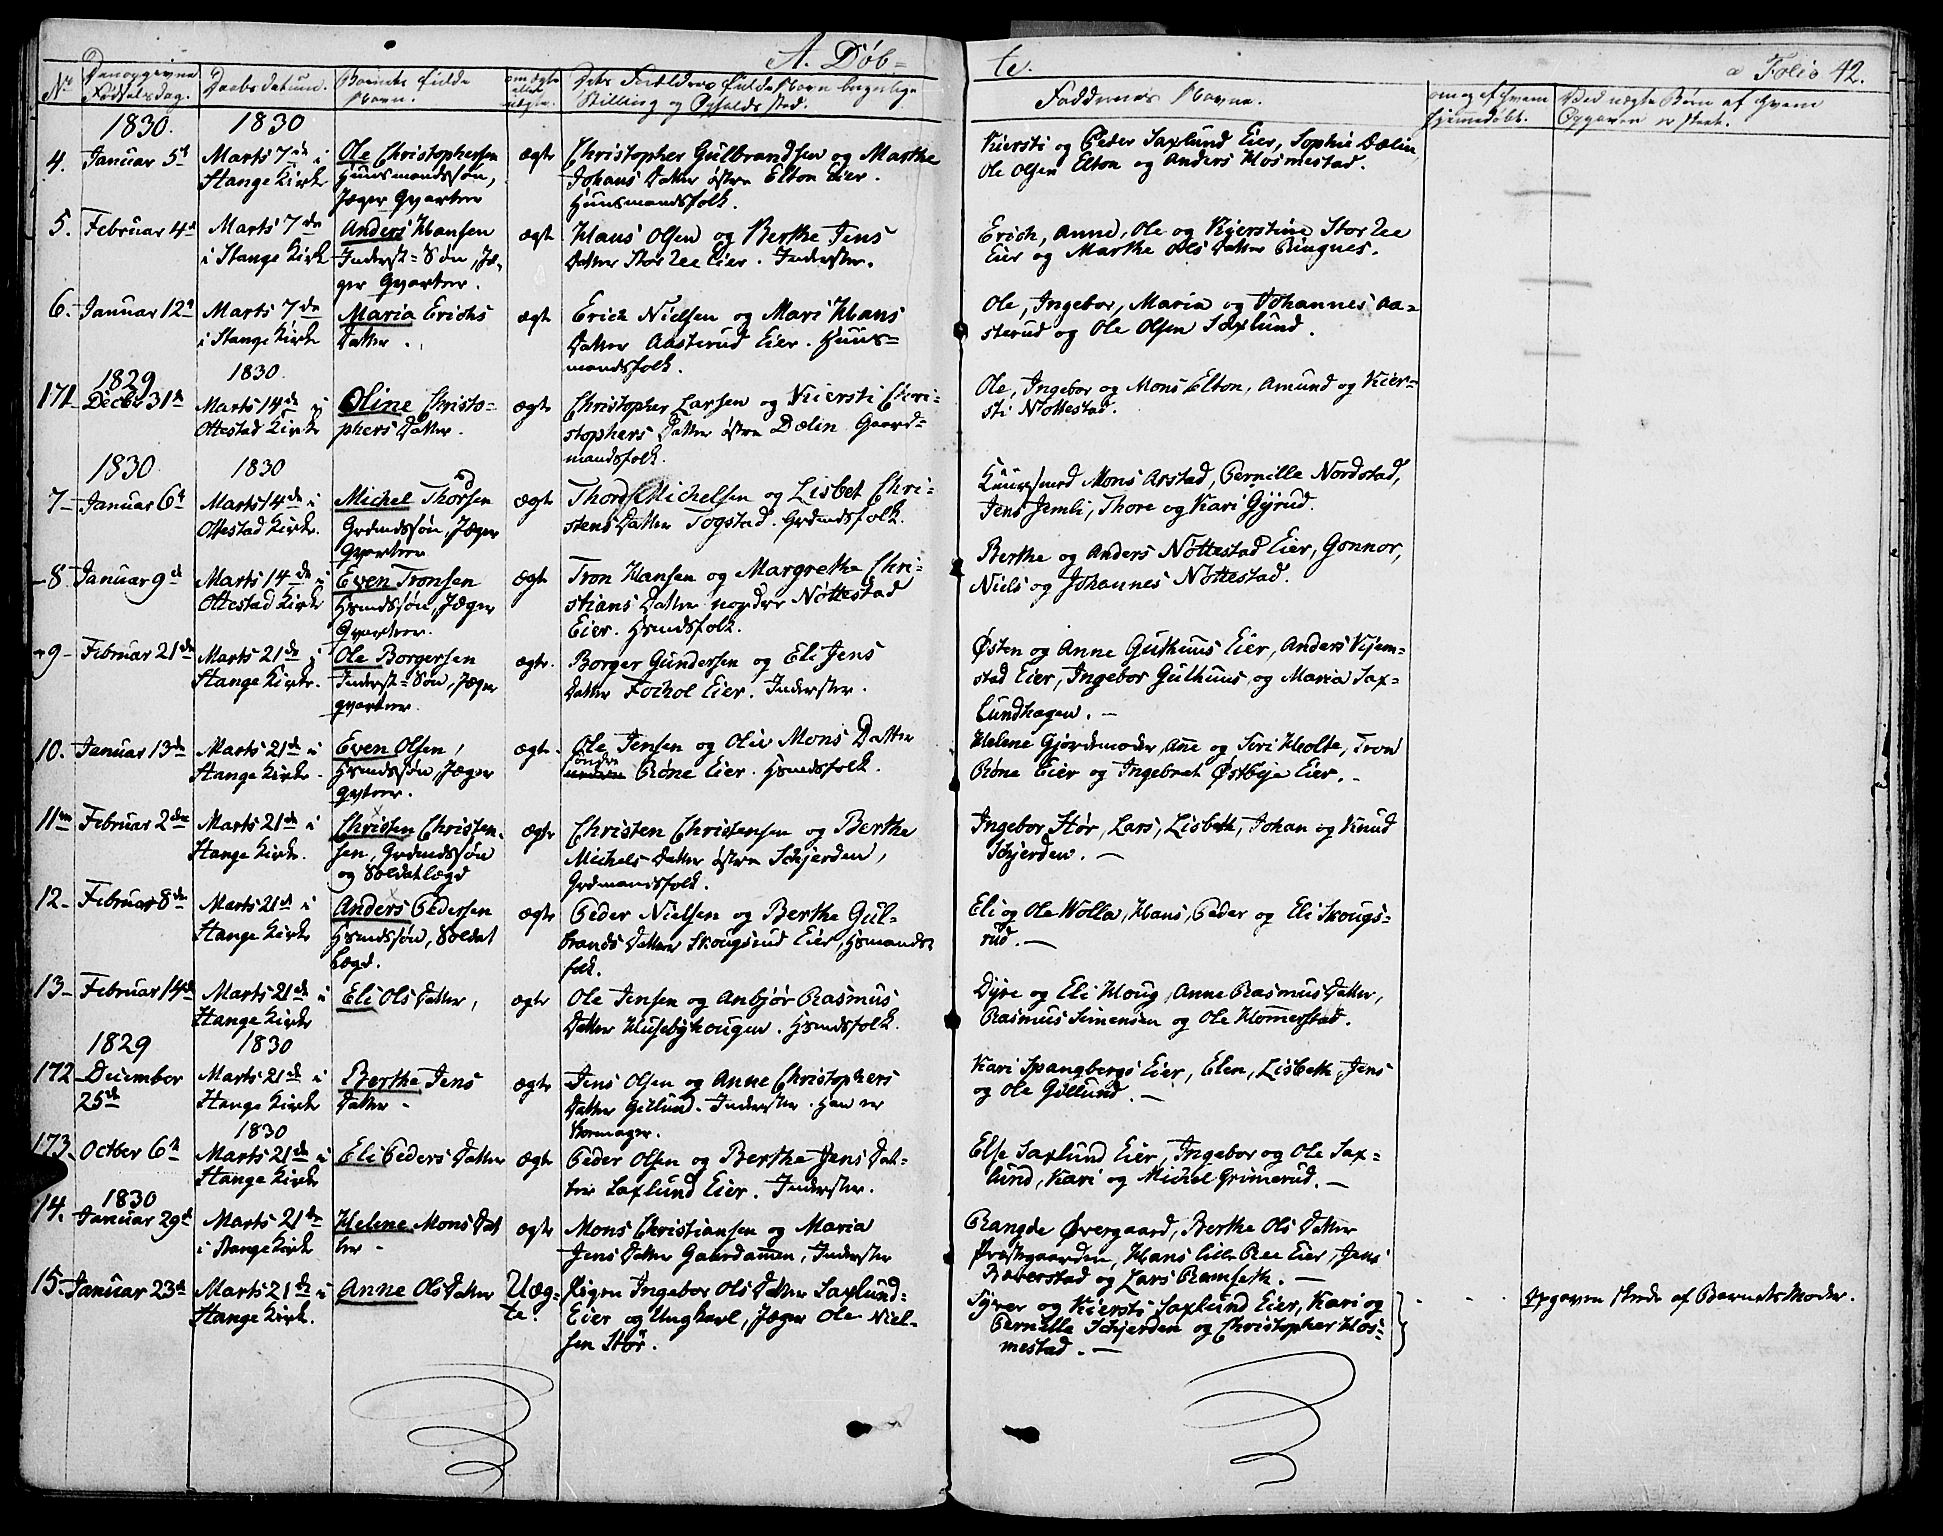 A. Døb=
te.
a Folio 42.
No
Fødselsdag.
Daabsdatum.
Barnets fulde
Navn.
om ægte
eller
uægte.
Dets Forældres fulde Navn borgerlige
Stilling og Opholdssted.
Faddernes Navne.
om og af hvem
hjemmedøbt.
Ved uægte Børn af hvem
Opgaven er skeet.
1830.
1830
4. Januar 5t
Marts 7de i
Stange Kirke
Ole Christophersen
Huusmandssøn,
Jæger Qvarteer
ægte
Christopher Gulbrandsen og Marthe
Johans Datter østre Elton Eier.
Huusmandsfolk.
Kiersti og Peder Saxlund Eier, Sophie Dælin
Ole Olsen Elton og Anders Hosmestad.
5. Februar 4de
Marts 7de
i Stange Kirk
Anders Hansen
Inderst=Søn, Jæ-
ger Qvarteer.
ægte
Hans Olsen og Berthe Jens
Datter Stor Ree Eier. Inderster.
Erich, Anne, Ole og Kjerstine Stor Ree
Eier og Marthe Ols Datter Ringnes.
6. Januar 12te
Marts 7de
i Stange Kirke
Maria Erichs
Datter.
ægte
Erich Nielsen og Mari Hans
Datter Aasterud Eier. Huus=
mandsfolk.
Ole, Ingebor, Maria og Johannes Aa=
sterud og Ole Olsen Saxlund.
1829
1830.
171 Decbr 31te
Marts 14de i
Ottestad Kirke
Oline Christo-
phers Datter.
ægte
Christopher Larsen og Kiersti Chri-
stophers Datter østre Dælin Gaard=
mandsfolk.
Ole, Ingebor og Mons Elton, Amund og Kier-
sti Nøttestad.
1830
1830
7 Januar 6te
Marts 14de i
Ottestad Kirke.
Michel Thordsen
Grdmdssøn, Jæger
Qvarteer
ægte
Thord Michelsen og Lisbet Chri-
stens Datter Togstad. Grdmdsfolk.
Mons Arstad, Pernille Nordstad,
Jens Jemli, Thore og Kari Gyrud.
8. Januar 9de
Marts 14de i
Ottestad Kirke
Even Tronsen
Hsmdssøn, Jæger
Qvarteer.
ægte
Tron Hansen og Margrethe Chri-
stians Datter nordre Nøttestad
Eier. Hsmdsfolk.
Berthe og Anders Nøttestad Eier, Gonnor,
Niels og Johannes Nøttestad.
9 Februar 21de
Marts 21de i
Stange Kirke.
Ole Borgersen
Inderst=Søn, Jæger
qvarteer.
ægte.
Borger Gundersen og Eli Jens
Datter Fokhol Eier. Inderster.
Østen og Anne Guthuus Eier, Anders Kjem-
stad Eier, Ingebor Gulhuus og Maria Sax=
Lundhagen. —
10. Januar 13de
Marts 21de i
Stange Kirke.
Even Olsen,
Hsmdssøn, Jæger
Qvteer.
ægte.
Ole Jensen og Olie Mons Datter
søndre
Røne Eier. Hsmdsfolk.
Helene Gjordemoder, Ane og Siri Holte, Tron
Røne Eier og Ingebret Østbye Eier. -
11 Februar 2den
Marts 21de i
Stange Kirke.
Christen Christen-
sen, Grdmdssøn
og Soldatlægd
ægte
Christen Christensen og Berthe
Michels Datter østre Schjerden,
Grdmandsfolk.
Ingebor Stør, Lars, Lisbeth, Johan og Knud
Schjerden. —
12 Februar 8de
Marts 21de i
Stange Kirke
Anders Pedersen
Hsmdssøn, Soldat
Lægd.
ægte
Peder Nielsen og Berthe Gul-
brands Datter Skougsrud Eier, Hsmands=
folk.
Eli og Ole Wolla, Hans, Peder og Eli Skougs=
rud. —
13 Februar 14de
Marts 21de i
Stange Kirke
Eli Ols Datter,
ægte
Ole Jensen og Anbjør Rasmus
Datter Husebyhougen. Hsmdsfolk.
Dyre og Eli Houg, Anne Rasmus Datter,
Rasmus Simensen og Ole Homerstad.
1829
1830
172 December
25de
Marts 21de i
Stange Kirke
Berthe Jens
Datter -
ægte
Jens Olsen og Anne Christophers
Datter Gillund. Inderster. Han er
Skomager.
Kari Spangbergs Eier, Elen, Lisbeth, Jens
og Ole Gillund. —
1830
173 October 6te
Marts 21de i
Stange Kirke
Eli Peders Datter
ægte
Peder Olsen og Berthe Jens Dat-
ter Saxlund Eier. Inderster.
Else Saxlund Eier, Ingebor og Ole Sax=
lund, Kari og Michel Grimerud. —
1830
14. Januar 29de
Marts 21de
i Stange Kirke
Helene Mons Dat
ter -
ægte
Mons Christiansen og Maria
Jens Datter Gaardammen, Inderster
Rangde Øvergaard, Berthe Ols Datter
Præstegaarden, Hans lille Ree Eier, Jens
Bæverstad og Lars Ramseth. —
15 Januar 23de
Marts 21de i
Stange Kirke.
Anne Ols Datter
Uæg-
te.
Pigen Ingebor Ols Datter Saxlund-
Eier og Ungkarl, Jæger Ole Niel-
sen Stør.
Syver og Kiersti Saxlund Eier, Kari og
Pernille Schjerden og Christopher Hos-
mestad. —
Opgaven skede af Barnets Moder.